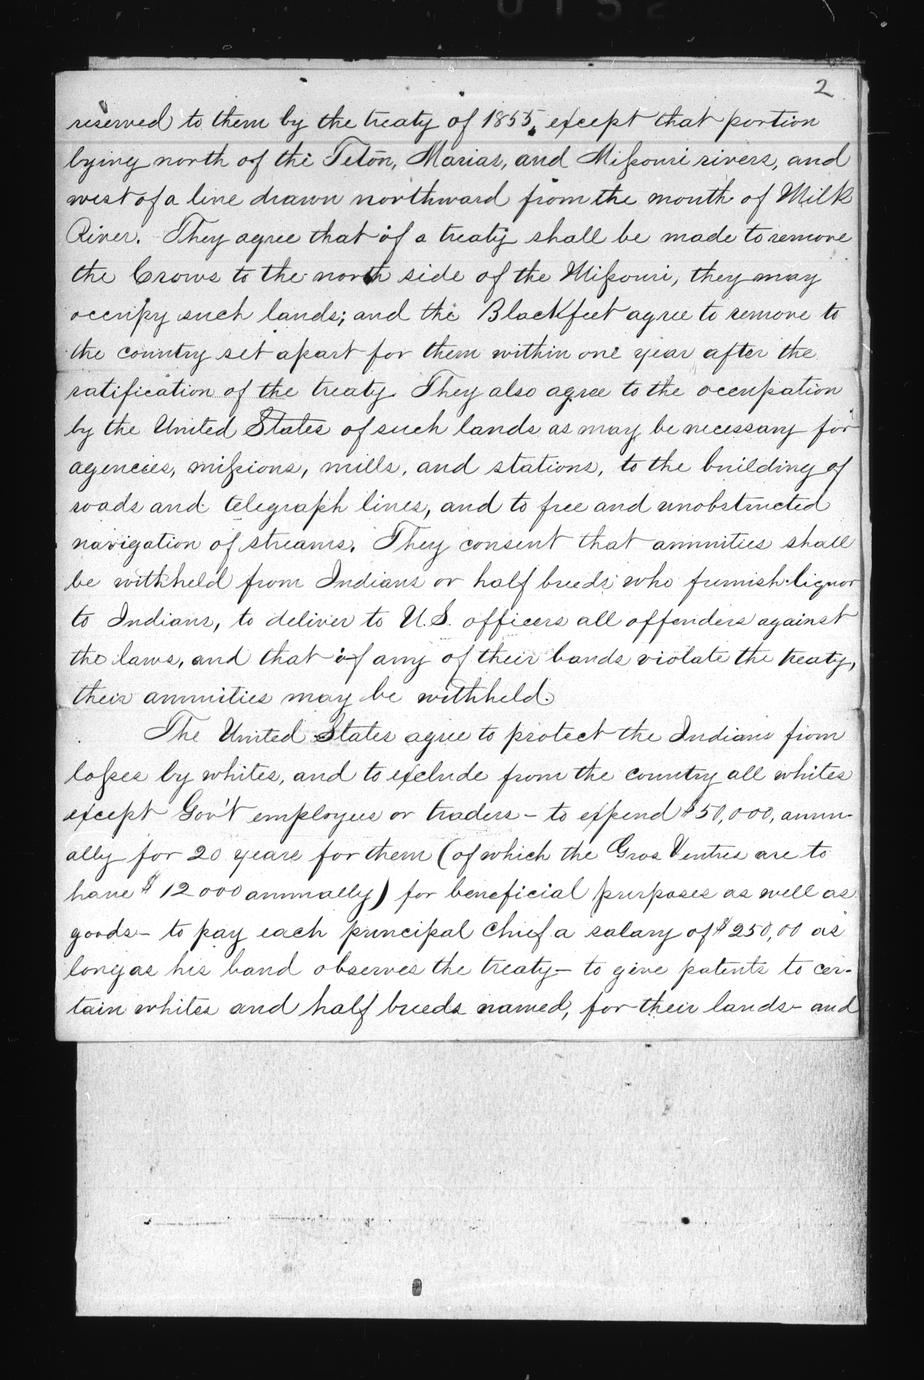 2
reserved to them by the treaty of 1855, except that portion
lying north of the Teton, Marias, and Missouri rivers, and
west of a line drawn northward from the mouth of Milk
River. They agree that if a treaty shall be made to remove
the Crows to the north side of the Missouri, they may
occupy such lands; and the Blackfeet agree to remove to
the country set apart for them within one year after the
ratification of the treaty. They also agree to the occupation
by the United States of such lands as may be necessary for
agencies, missions, mills, and stations, to the building of
roads and telegraph lines, and to free and unobstructed
navigation of streams. They consent that annuities shall
be withheld from Indians or half breeds who furnish liquor
to Indians, to deliver to U.S. officers all offenders against
the laws, and that if any of their bands violate the treaty,
their annuities may be withheld.
The United States agree to protect the Indians from
losses by whites, and to exclude from the country all whites
except Gov't employees or traders - to expend $50,000, annu-
ally for 20 years for them (of which the Gros Ventres are to
have $12000 annually) for beneficial purposes as well as
goods - to pay each principal chief a salary of $250,00 as
long as his band observes the treaty - to give patents to cer-
tain whites and half breeds named, for their lands - and